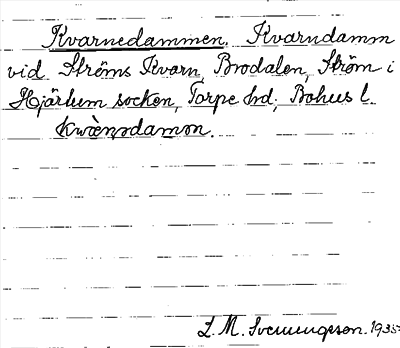 Kvarnedammen. Kvarndamm
vid Ströms Kvarn, Brodalen, Ström i
Hjärtum socken, Torpe hd; Bohus l.
Kwæ̀ṇədamən.
L. M. Svenungsson. 1935